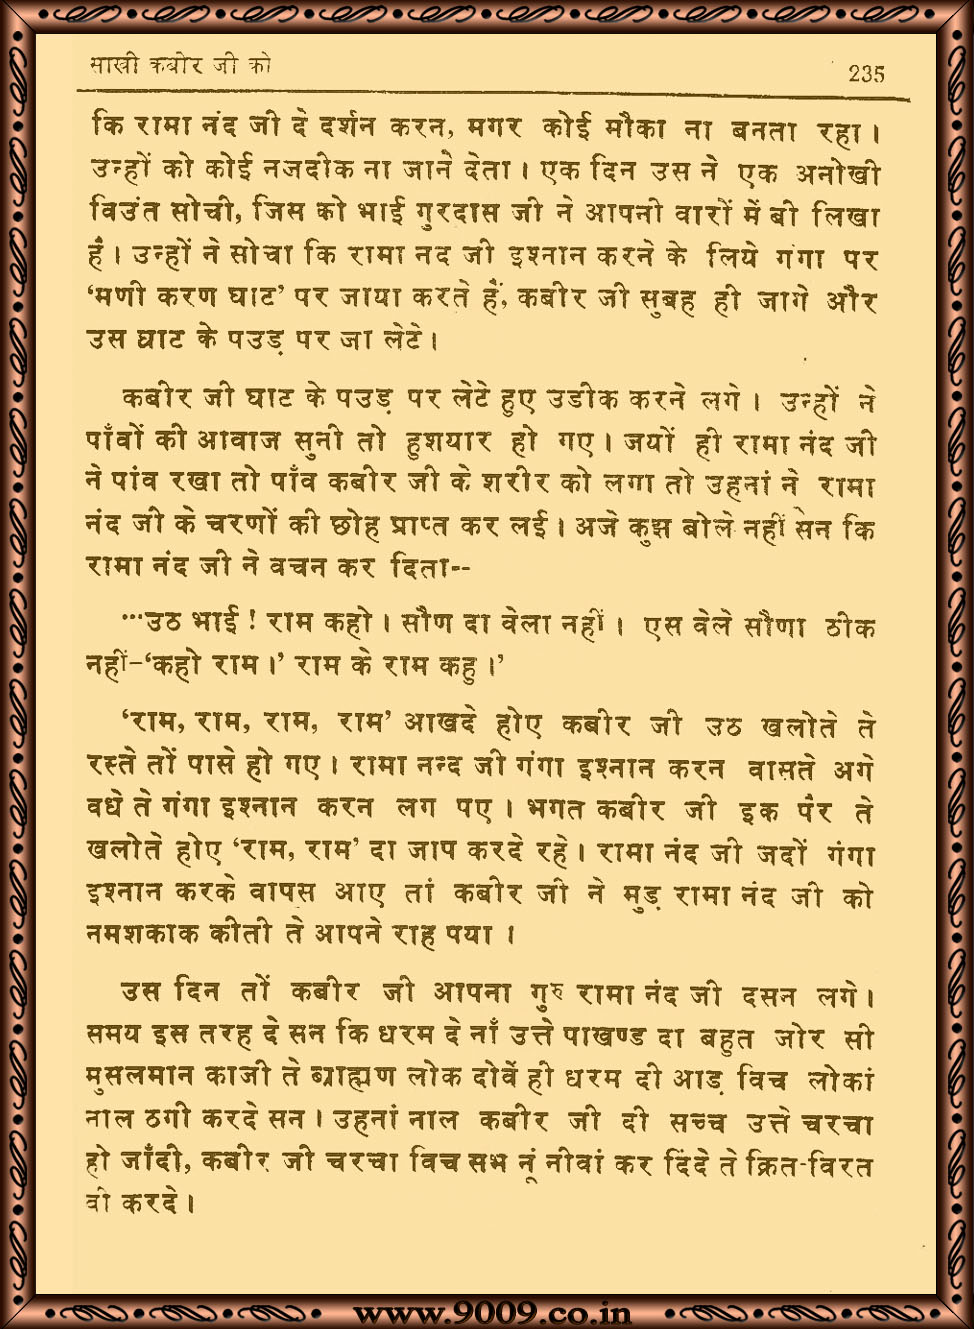 साखी कबीर जी को
235
कि रामा नंद जी दे दर्शन करन, मगर कोई मौका ना बनता रहा।
उन्हों को कोई नजदीक ना जाने देता। एक दिन उस ने एक अनोखी
विउंत सोची, जिस को भाई गुरदास जी ने आपनी वारों में बी लिखा
है। उन्हों ने सोचा कि रामा नद जी इश्नान करने के लिये गंगा पर
‘मणी करण घाट’ पर जाया करते हैं, कबीर जी सुबह ही जागे और
उस घाट के पउड़ पर जा लेटे।
कबीर जी घाट के पउड़ पर लेटे हुए उडीक करने लगे। उन्हों ने
पाँवों की आवाज सुनी तो हुशयार हो गए। जयों ही रामा नंद जी
ने पांव रखा तो पाँव कबीर जी के शरीर को लगा तो उहनां ने रामा
नंद जी के चरणों की छोह प्राप्त कर लई। अजे कुझ बोले नहीं सेन कि
रामा नंद जी ने वचन कर दिता--
···उठ भाई! राम कहो। सौण दा वेला नहीं। एस वेले सौणा ठीक
नहीं-‘कहो राम।’ राम के राम कहु।’
‘राम, राम, राम, राम’ आखदे होए कबीर जी उठ खलोते ते
रस्ते तों पासे हो गए। रामा नन्द जी गंगा इश्नान करन वासते अगे
वधे ते गंगा इश्नान करन लग पए। भगत कबीर जी इक पैर ते
खलोते होए ‘राम, राम’ दा जाप करदे रहे। रामा नंद जी जदों गंगा
इश्नान करके वापस आए तां कबीर जी ने मुड़ रामा नंद जी को
नमशकाक कीती ते आपने राह पया।
उस दिन तों कबीर जी आपना गुरु रामा नंद जी दसन लगे।
समय इस तरह दे सन कि धरम दे नाँ उत्ते पाखण्ड दा बहुत जोर सी
मुसलमान काजी ते ब्राह्मण लोक दोवें ही धरम दी आड़ विच लोकां
नाल ठगी करदे सन। उहनां नाल कबीर जी दी सच्च उत्ते चरचा
हो जाँदी, कबीर जी चरचा विच सभ नूं नीवां कर दिंदे ते क्रित-विरत
वी करदे।
www.9009.co.in